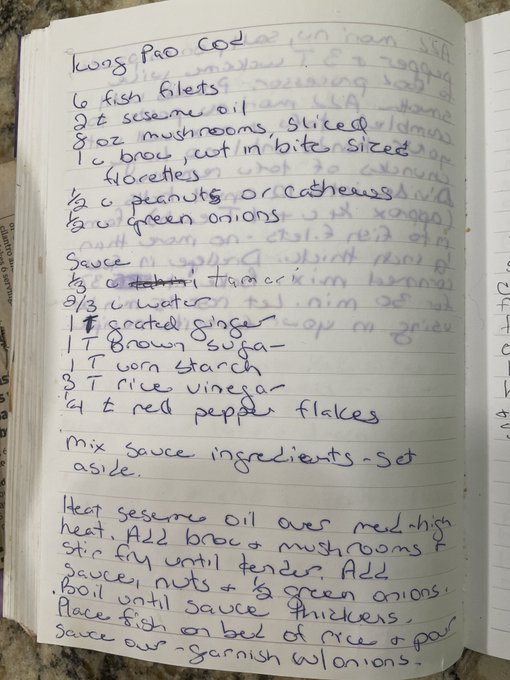 Kung Pao Cod
6 fish filets
2 t seseme oil
8 oz mushrooms, sliced
1 c broc, cut in bite sized
florettes
1/2 c peanuts or cashews
1/2 c green onions
Sauce
1/3 c tamari
2/3 c water
1 T grated ginger
1 T Brown sugar
1 T corn starch
3 T rice vinegar
1/4 t red pepper flakes
Mix sauce ingredients - set
aside.
Heat seseme oil over med-high
heat. Add broc & mushrooms &
stir fry until tender. Add
sauce, nuts & 1/2 green onions.
Boil until sauce thickens.
Place fish on bed of rice & pour
sauce over - garnish w/onions.